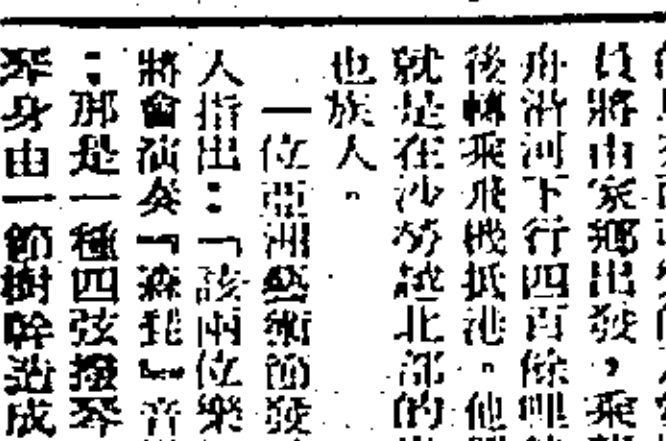 員將由家鄉出發，乘
舟沿河下行四百餘哩
後轉乘飛機抵港。他
就是在沙勞越北部的
也族人。
一位亞洲藝術節發
人指出：「該兩位樂
將會演奏『森』音
：那是一種四弦撥琴
琴身由一節樹幹造成